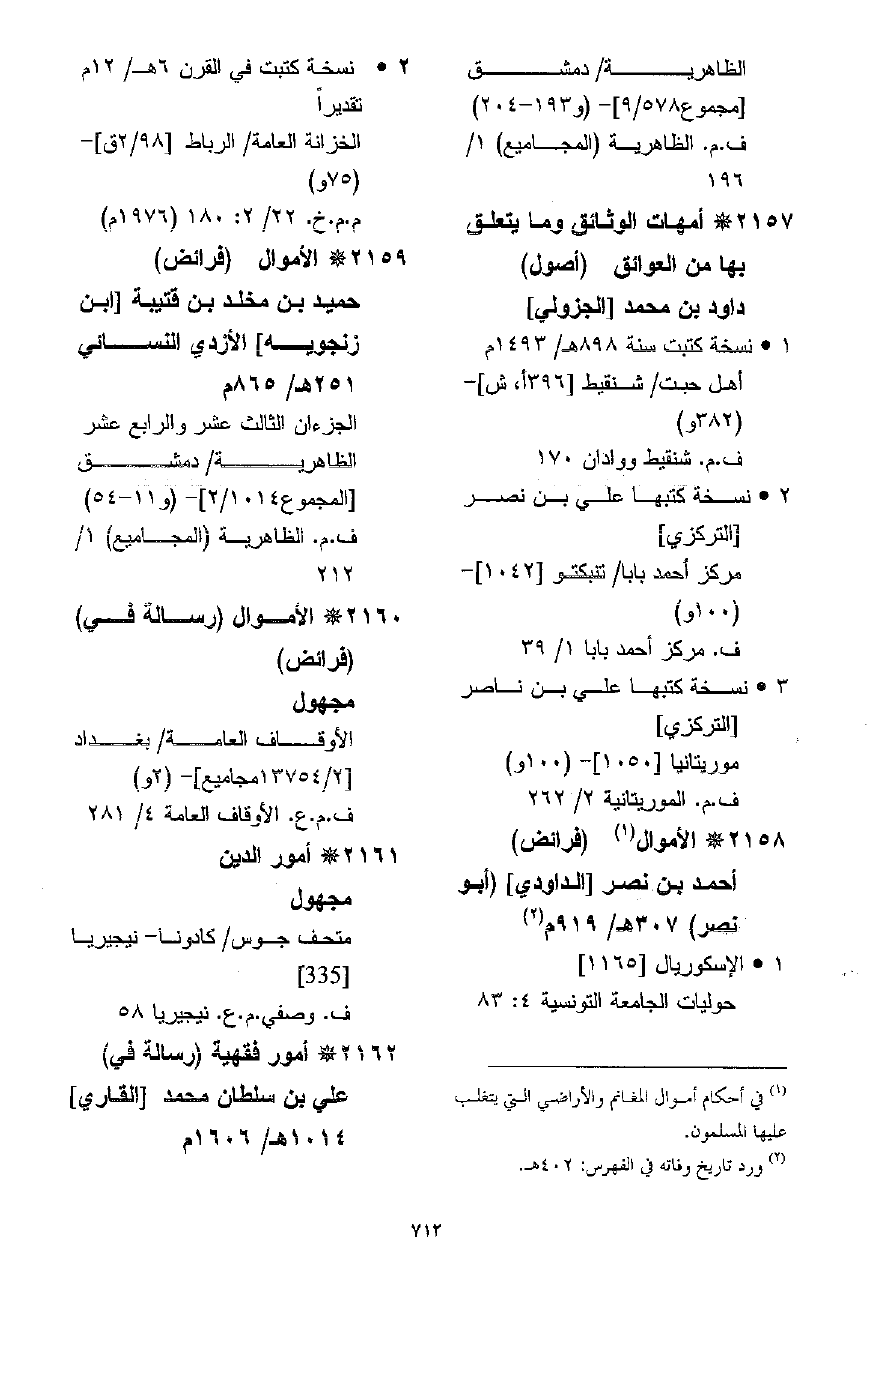 الظاهرية/ دمشق
[مجموع٩/٥٧٨]- (و١٩٣-٢٠٤)
ف.م. الظاهرية (المجاميع) ١/
١٩٦
٢١٥٧* أمهات الوثائق وما يتعلق
بها من العوائق (أصول)
داود بن محمد [الجزولي]
١ • نسخة كتبت سنة ٨٩٨هـ/ ١٤٩٣م
أهل حبت/ شنقيط [٣٩٦أ، ش]-
(٣٨٢و)
ف.م. شنقيط ووادان ١٧٠
٢ • نسخة كتبها علي بن نصر
[التركزي]
مركز أحمد بابا/ تنبكتو [١٠٤٢]-
(١٠٠و)
ف. مركز أحمد بابا ١/ ٣٩
٣ • نسخة كتبها علي بن ناصر
[التركزي]
موريتانيا [١٠٥٠]- (١٠٠و)
ف.م. الموريتانية ٢/ ٢٦٢
٢١٥٨* الأموال(١) (فرائض)
أحمد بن نصر [الداودي] (أبو
نصر) ٣٠٧هـ/ ٩١٩م(٢)
١ • الإسكوريال [١١٦٥]
حوليات الجامعة التونسية ٤: ٨٣
(١) في أحكام أموال المغانم والأراضي التي يتغلب
عليها المسلمون.
(٢) ورد تاريخ وفاته في الفهرس: ٤٠٢هـ.
٢ • نسخة كتبت في القرن ٦هـ/ ١٢م
تقديراً
الخزانة العامة/ الرباط [٢/٩٨ق]-
(٧٥و)
م.م.خ. ٢٢/ ٢: ١٨٠ (١٩٧٦م)
٢١٥٩* الأموال (فرائض)
حميد بن مخلد بن قتيبة [ابن
زنجويه] الأزدي النسائي
٢٥١هـ/ ٨٦٥م
الجزءان الثالث عشر والرابع عشر
الظاهرية/ دمشق
[المجموع٢/١٠١٤]- (و١١-٥٤)
ف.م. الظاهرية (المجاميع) ١/
٢١٢
٢١٦٠* الأموال (رسالة في)
(فرائض)
مجهول
الأوقاف العامة/ بغداد
[١٣٧٥٤/٢مجاميع]- (٢و)
ف.م.ع. الأوقاف العامة ٤/ ٢٨١
٢١٦١* أمور الدين
مجهول
متحف جوس/ كادونا- نيجيريا
[335]
ف. وصفي.م.ع. نيجيريا ٥٨
٢١٦٢* أمور فقهية (رسالة في)
علي بن سلطان محمد [القاري]
١٠١٤هـ/ ١٦٠٦م
٧١٢